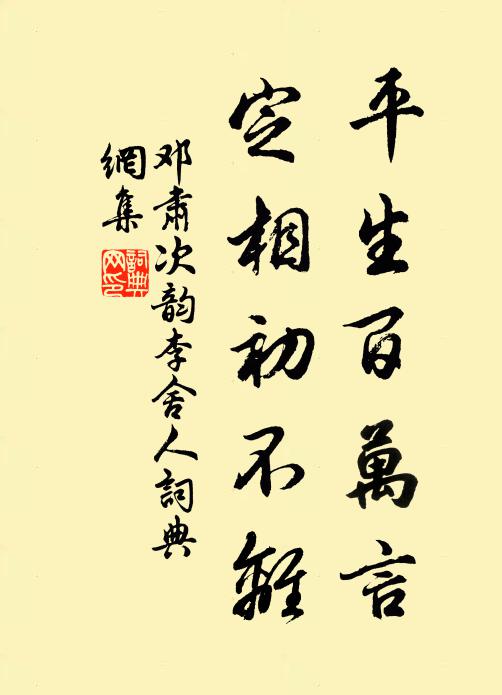 平生百萬言
定相初不離
邓肅次韵李舍人詞典
網集
詞典
网印